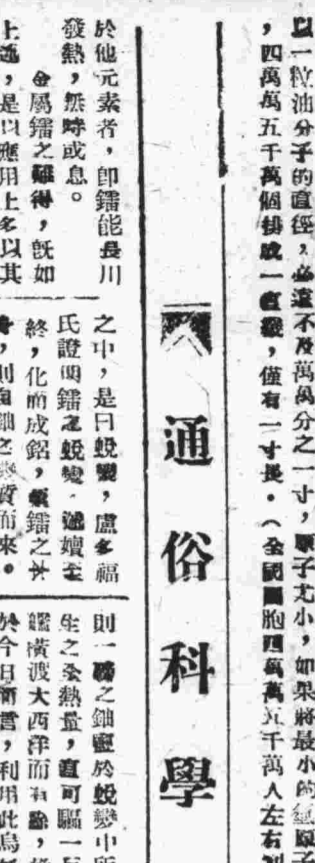 以一粒油分子的直徑，必遠不及萬萬分之一寸，原子尤小，如果將最小的氫原子
，四萬萬五千萬個排成一直線，僅有一寸長。（全國同胞四萬萬五千萬人左右
通俗科學
於他元素者，即鐳能長川
發熱，無時或息。
金屬鐳之難得，既如
上述，是以應用上多以其
之中，是曰蛻變，盧多福
氏證明鐳之蛻變，遞嬗至
終，化而成鉛，鐳之
，則自鈾之變質而來。
則一磅之鈾鹽於蛻變中所
生之全熱量，直可驅一
艦橫渡大西洋而有餘，
於今日而言，利用此